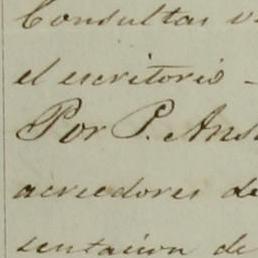 Consultas v
el escritorio -
Por P. Ans
acreedores de
sentacion de